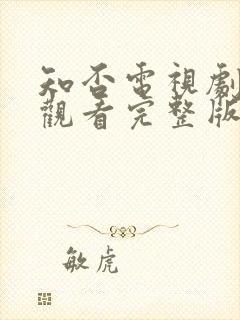 知否電視劇
觀看完整版
敏虎